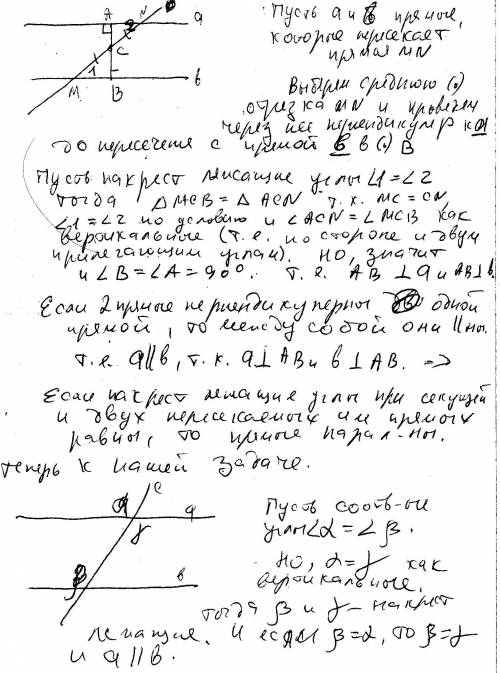 A N a
2
C
1
M B в
Пусть a и b прямые,
которые пересекает
прямая MN
Выберем середину (.)
отрезка MN и проведем
через нее перпендикуляр к a
до пересечения с прямой b в (.) B
Пусть накрест лежащие углы ∠1=∠2
тогда △MCB = △ACN т.к. MC=CN,
∠1=∠2 по условию и ∠ACN=∠MCB как
вертикальные (т.е. по стороне и двум
прилегающим углам). Но, значит
и ∠B=∠A=90°. т.е. AB ⊥ a и AB ⊥ b.
Если 2 прямые перпендикулярны одной
прямой, то между собой они ||ны.
т.е. a||b, т.к. a⊥AB и b⊥AB. =>
Если накрест лежащие углы при секущей
и двух пересекаемых им прямых
равны, то прямые парал-ны.
теперь к нашей задаче.
c
α a
γ
β в
Пусть соотв-ые
углы ∠α=∠β.
Но, α=γ как
вертикальные,
тогда β и γ - накрест
лежащие. И если β=α, то β=γ
и a||b.